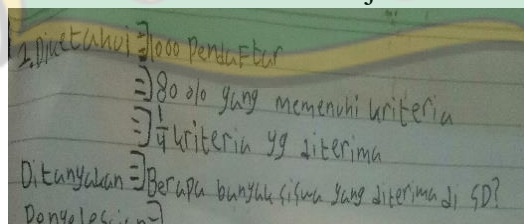 1. Diketahui => 1000 Pendaftar
=> 80 % yang memenuhi kriteria
=> 1/4 kriteria yg diterima
Ditanyakan => Berapa banyak siswa yang diterima di SD?
Penyelesaian =>